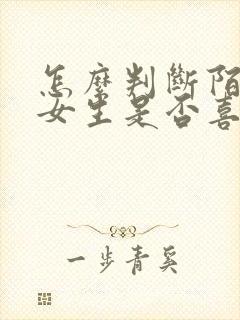 怎麼判斷陌
女生是否喜
一步青奚